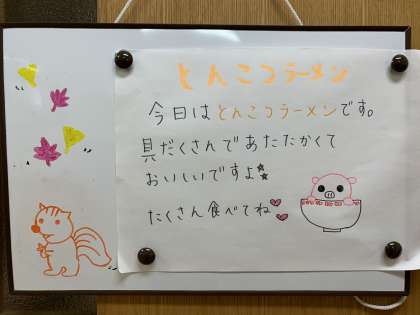 とんこつラーメン
今日はとんこつラーメンです。
具だくさんであたたかくて
おいしいですよ
たくさん食べてね